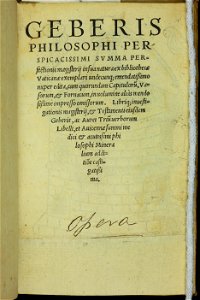 GEBERIS
PHILOSOPHI PER
SPICACISSIMI SVMMA PER
fectionis magisterij in sua natura ex bibliothecæ
Vaticanæ exemplari undecunque emendatissimo
nuper edita, cum quorundam Capitulorũ, Va-
sorum, & Fornacum, in volumine alias mendo
sissime impresso omissorum. Libriq; inuesti
gationis magisterij, & Testamenti eiusdem
Geberis, ac Aurei Trium verborum
Libelli, et Auicennæ summi me
dici & acutissimi phi
losophi Minera
lium addi-
tione casti-
gatissi
ma.
Opera